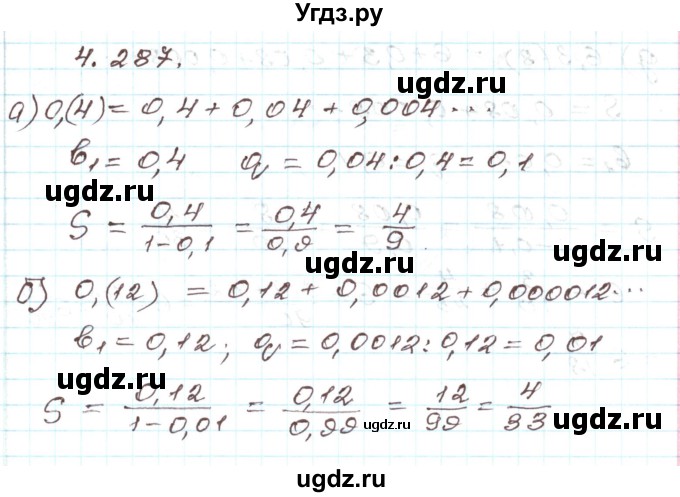 Угдз.ру
4. 287.
ugdz.ru
а) 0,(4) = 0,4 + 0,04 + 0,004 ...
ugdz.ru
b₁ = 0,4 q = 0,04 : 0,4 = 0,1
ugdz.ru
S = 0,4/1-0,1 = 0,4/0,9 = 4/9
ugdz.ru
б) 0,(12) = 0,12 + 0,0012 + 0,000012...
b₁ = 0,12; q = 0,0012 : 0,12 = 0,01
ugdz.ru
ugdz.ru
S = 0,12/1-0,01 = 0,12/0,99 = 12/99 = 4/33
ugdz.ru
ugdz.ru